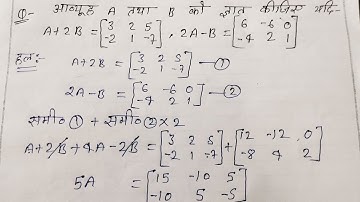 Q- आव्यूह A तथा B को ज्ञात कीजिए यदि-
A+2B = [3 2 5
-2 1 -7], 2A-B = [6 -6 0
-4 2 1]
हल:- A+2B = [3 2 5
-2 1 -7] —①
2A-B = [6 -6 0
-4 2 1] —②
समी० ① + समी० ② × 2
A+2B+4A-2B = [3 2 5
-2 1 -7] + [12 -12 0
-8 4 2]
5A = [15 -10 5
-10 5 -5]